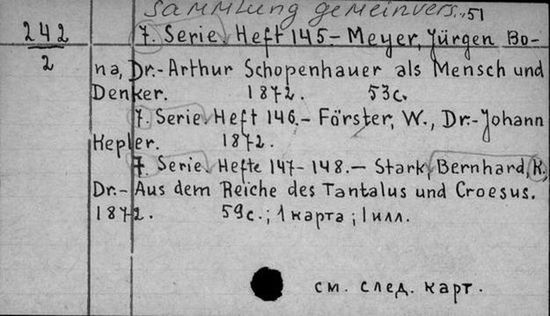 Sammlung gemeinvers. 51
242
2
7. Serie. Heft 145 - Meyer, Jürgen Bo-
na, Dr.- Arthur Schopenhauer als Mensch und
Denker. 1872. 53с.
7. Serie. Heft 146.- Förster, W., Dr.- Johann
Kepler. 1872.
7. Serie. Hefte 147-148.- Stark, Bernhard, K.,
Dr.- Aus dem Reiche des Tantalus und Croesus.
1872. 59с.; 1 карта; 1 илл.
см. след. карт.